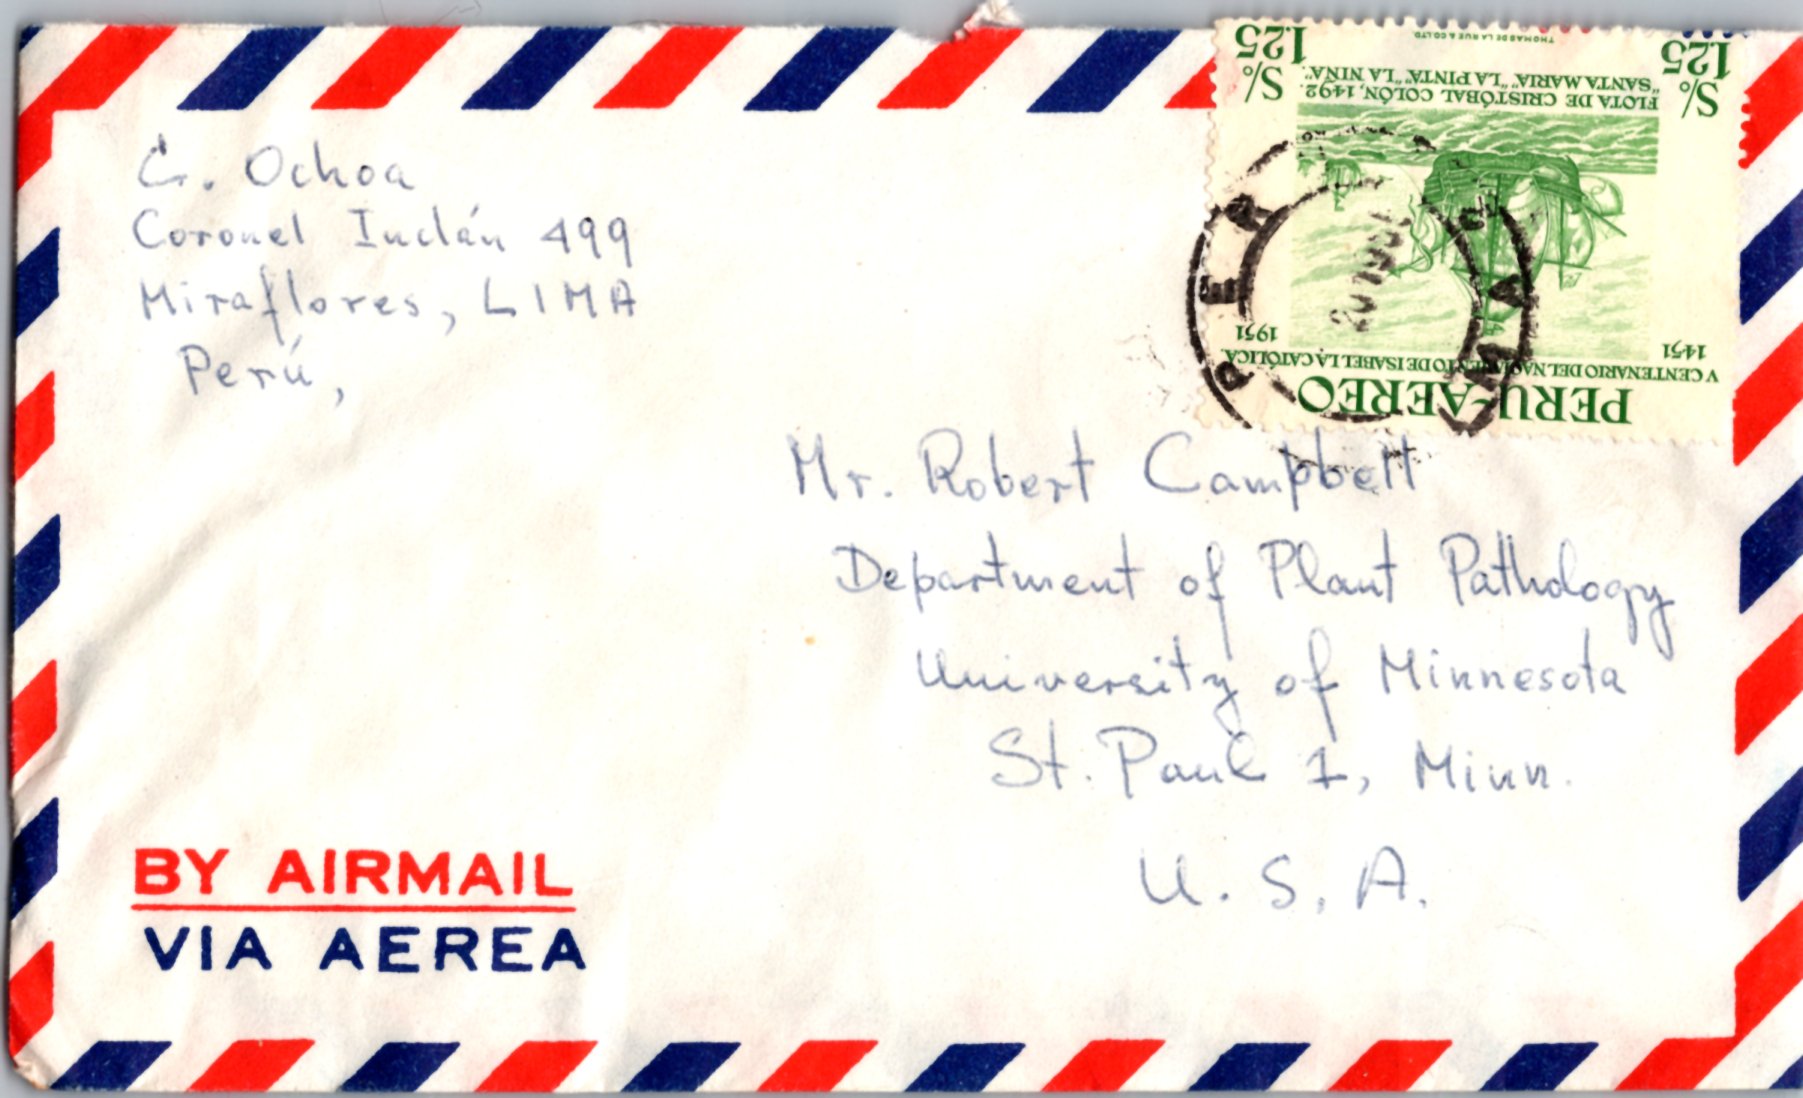 C. Ochoa
Coronel Inclán 499
Miraflores, LIMA
Perú,
PERU-AEREO
V CENTENARIO DEL NACIMIENTO DE ISABEL LA CATÓLICA.
1451 1951
FLOTA DE CRISTÓBAL COLÓN, 1492.
"SANTA MARIA" "LA PINTA" "LA NIÑA".
S/o 1.25 S/o 1.25
THOMAS DE LA RUE & CO. LTD.
LIMA
Mr. Robert Campbell
Department of Plant Pathology
University of Minnesota
St. Paul 1, Minn.
U. S. A.
BY AIRMAIL
VIA AEREA